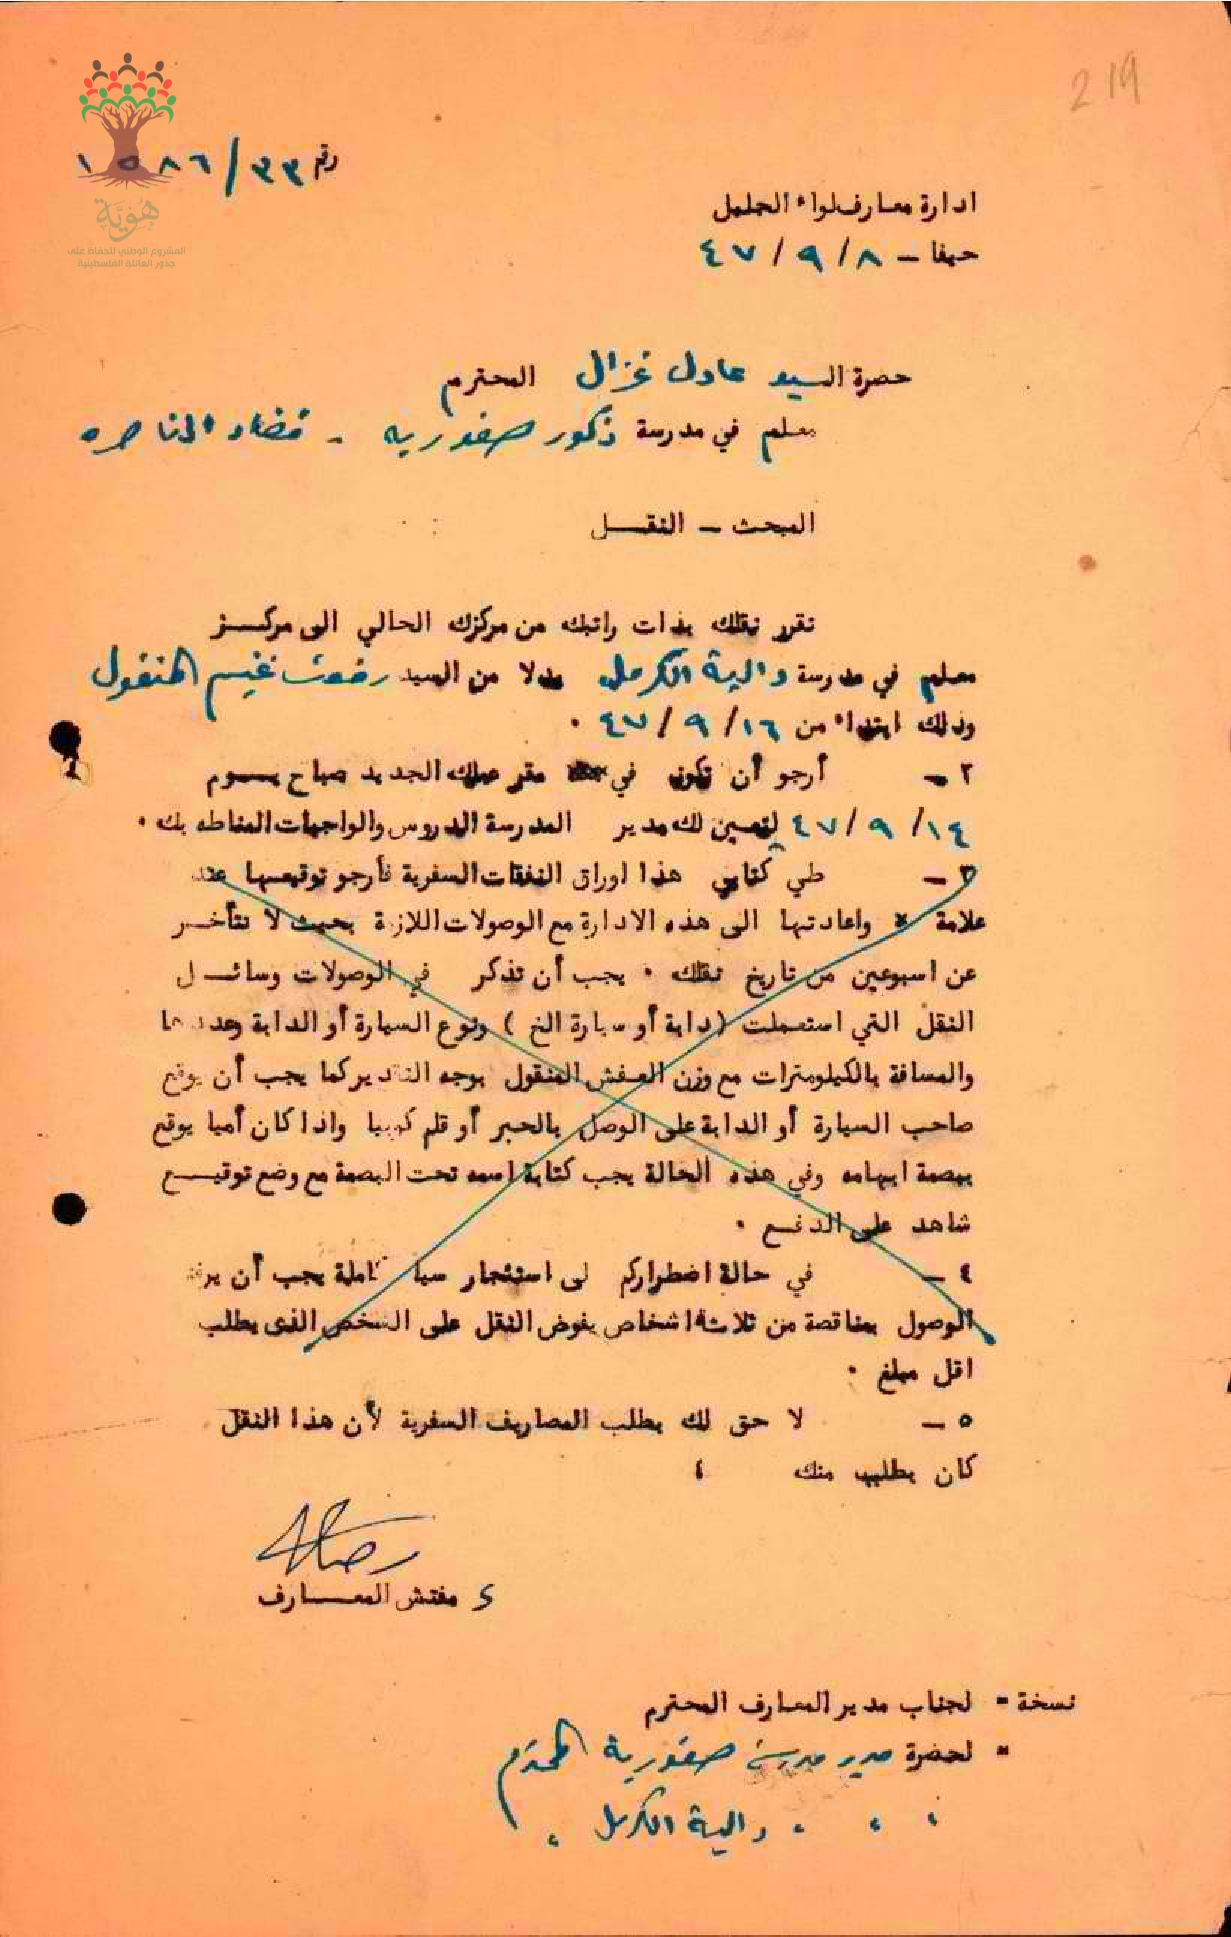 219
رقم ٣٣/١٥٨٦
هُوِيَّة
المشروع الوطني للحفاظ على
جذور العائلة الفلسطينية
ادارة معارف لواء الجليل
حيفا – ٤٧/٩/٨
حضرة السيد عادل غزال المحترم
معلم في مدرسة ذكور صفوريه - قضاء الناصره
المبحث – النقل
تقرر نقلك بذات راتبك من مركزك الحالي الى مركز
معلم في مدرسة دالية الكرمل بدلا من السيد رفعت غيم المنقول
وذلك ابتداء من ٤٧/٩/١٦ .
٢ – أرجو أن تكون في مقر عملك الجديد صباح يوم
٤٧/٩/١٤ ليعين لك مدير المدرسة الدروس والواجبات المناطه بك .
٣ – طي كتابي هذا اوراق النفقات السفرية فأرجو توقيعها عند
علامة × واعادتها الى هذه الادارة مع الوصولات اللازمة بحيث لا تتأخر
عن اسبوعين من تاريخ نقلك . يجب أن تذكر في الوصولات وسائل
النقل التي استعملت (دابة أو سيارة الخ ) ونوع السيارة أو الدابة وعددها
والمسافة بالكيلومترات مع وزن العفش المنقول بوجه التقدير كما يجب أن يوقع
صاحب السيارة أو الدابة على الوصل بالحبر أو قلم كوبيا واذا كان أميا يوقع
ببصمة ابهامه وفي هذه الحالة يجب كتابة اسمه تحت البصمة مع وضع توقيع
شاهد على الدفع .
٤ – في حالة اضطراركم لى استئجار سيا كاملة يجب أن يرفق
الوصول بمناقصة من ثلاثة اشخاص يفوض النقل على الشخص الذى يطلب
اقل مبلغ .
٥ – لا حق لك بطلب المصاريف السفرية لأن هذا النقل
كان بطلب منك
مفتش المعارف
نسخة - لجناب مدير المعارف المحترم
" لحضرة مدير مدرسة صفورية المحترم
" " " دالية الكرمل "